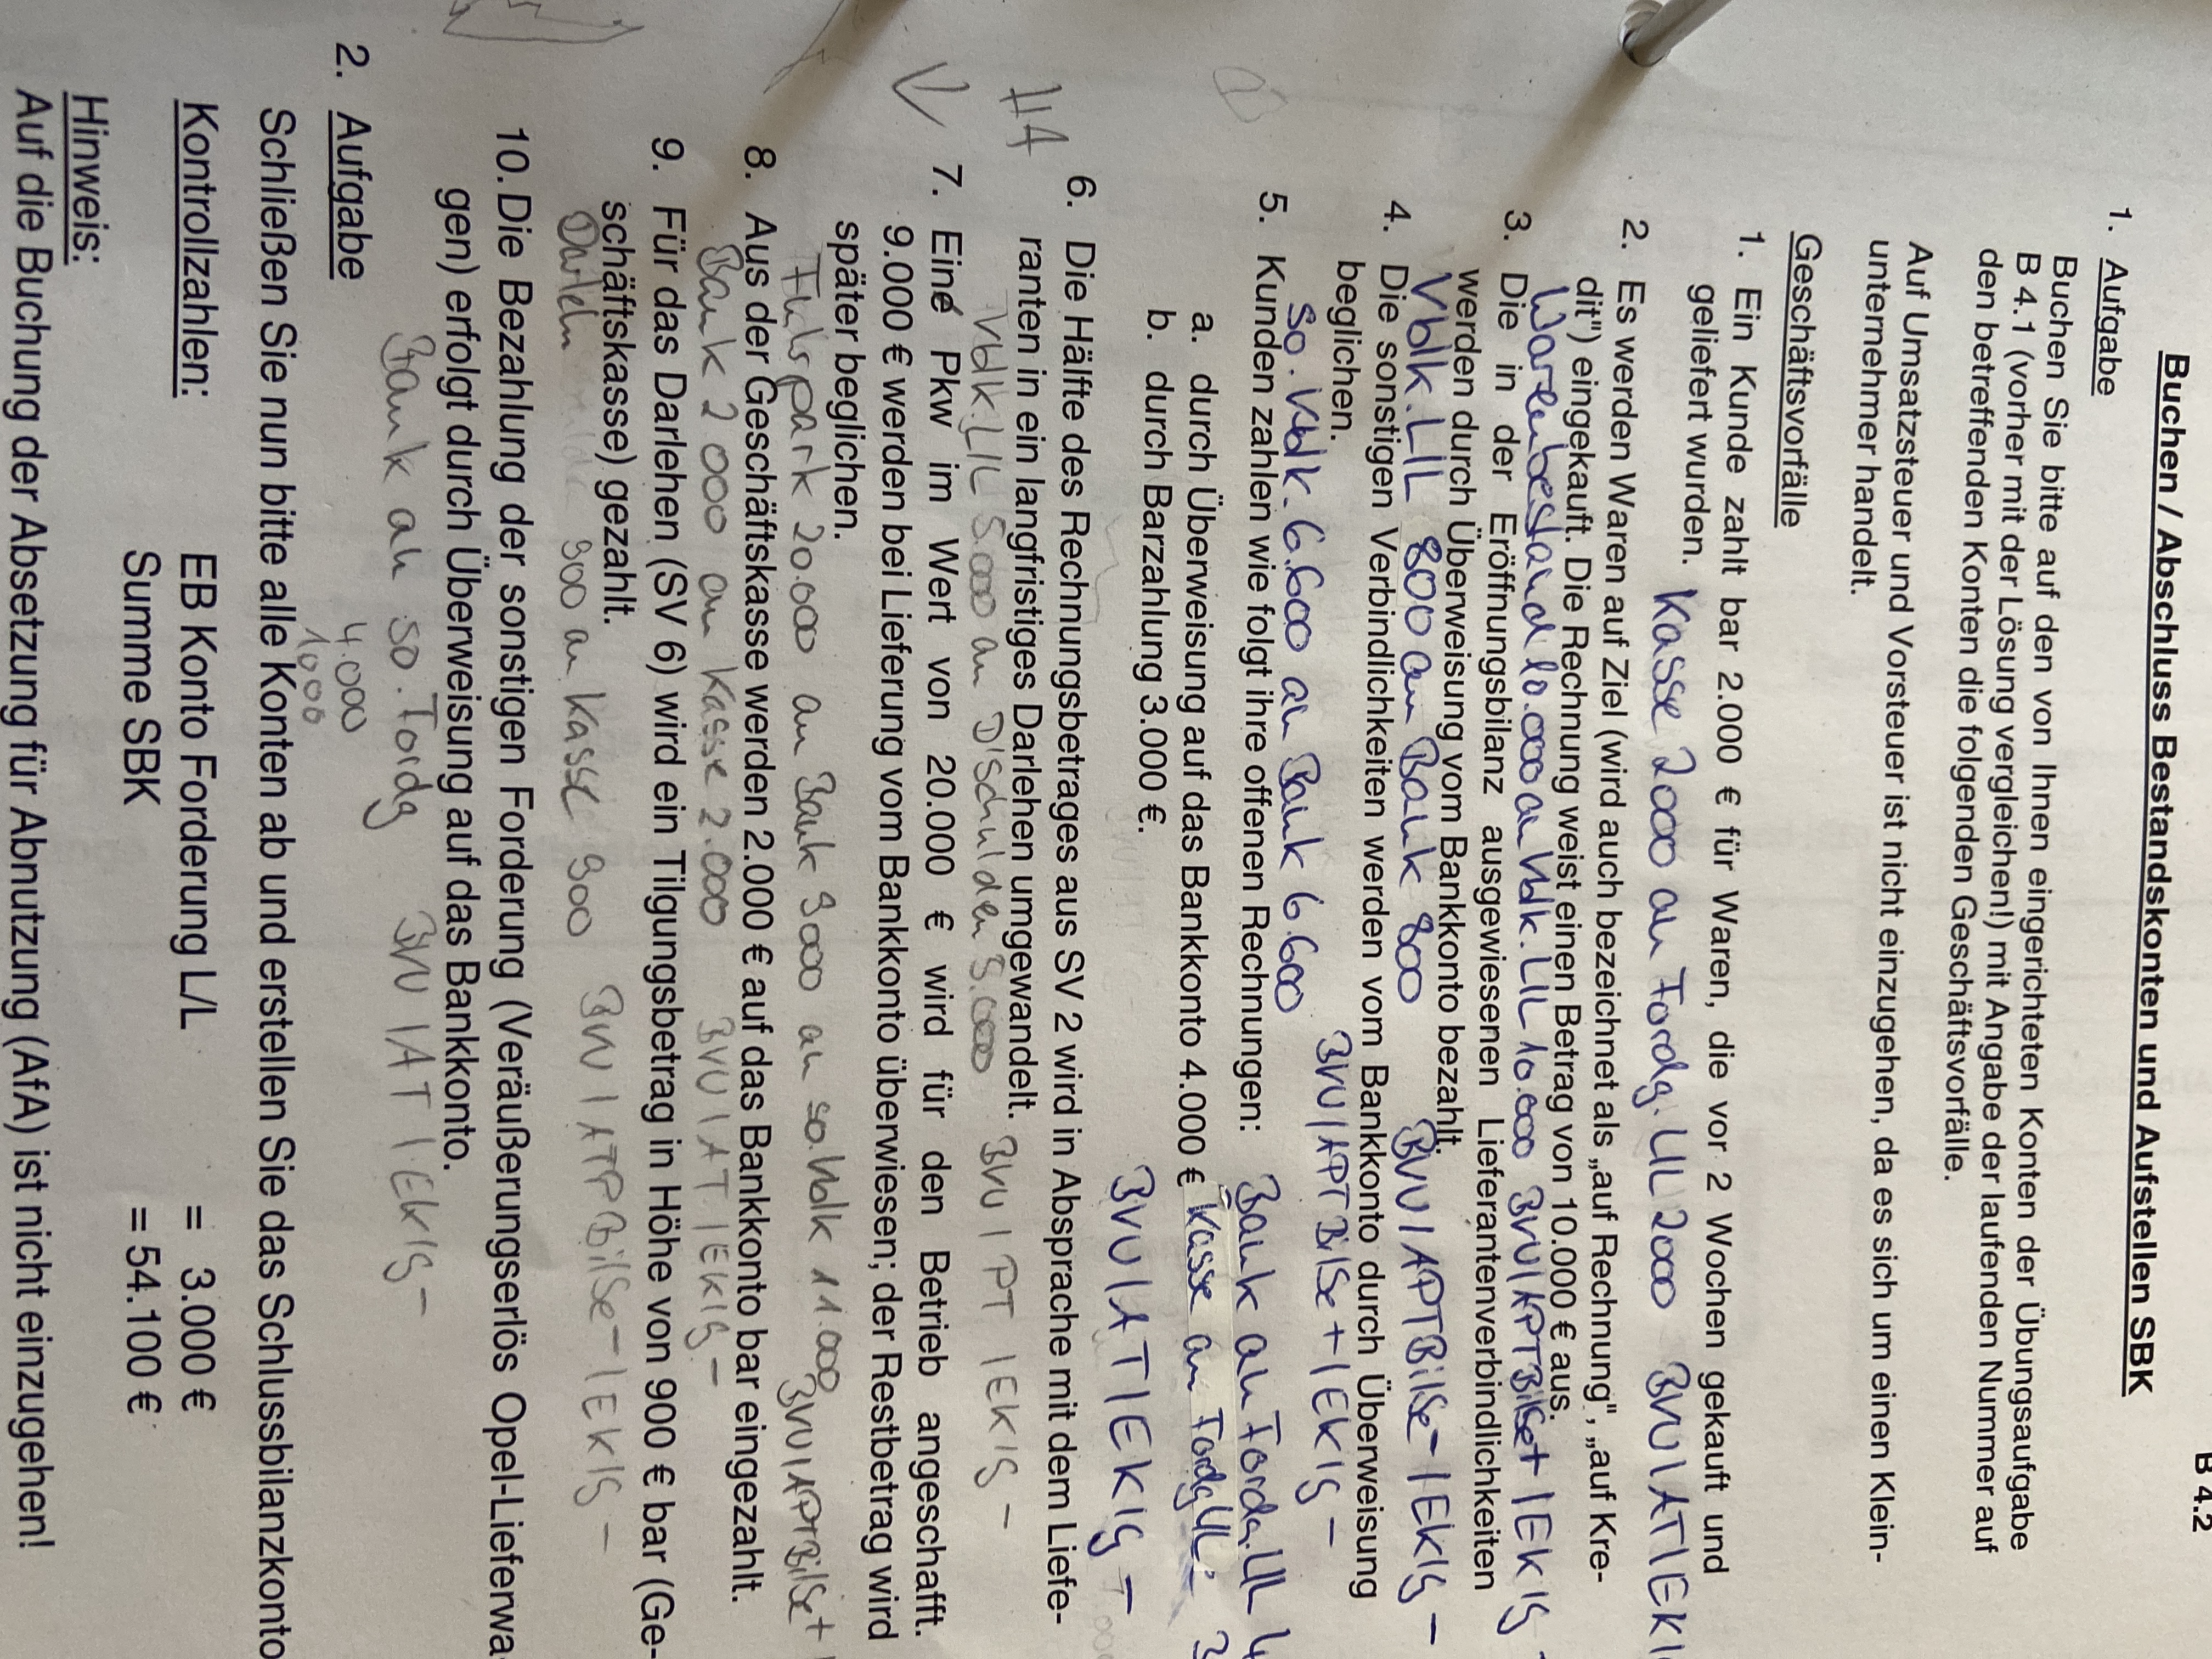 B 4.2
Buchen / Abschluss Bestandskonten und Aufstellen SBK
1. Aufgabe
Buchen Sie bitte auf den von Ihnen eingerichteten Konten der Übungsaufgabe
B 4.1 (vorher mit der Lösung vergleichen!) mit Angabe der laufenden Nummer auf
den betreffenden Konten die folgenden Geschäftsvorfälle.
Auf Umsatzsteuer und Vorsteuer ist nicht einzugehen, da es sich um einen Klein-
unternehmer handelt.
Geschäftsvorfälle
1. Ein Kunde zahlt bar 2.000 € für Waren, die vor 2 Wochen gekauft und
geliefert wurden.
Kasse 2000 an Fordg. LIL 2000 BVU IAT IEK
2. Es werden Waren auf Ziel (wird auch bezeichnet als „auf Rechnung", „auf Kre-
dit") eingekauft. Die Rechnung weist einen Betrag von 10.000 € aus.
Warenbestand 10.000 an Vbdk. LIL 10.000 BVU IAPTBilSe+ IEKIG -
3. Die in der Eröffnungsbilanz ausgewiesenen Lieferantenverbindlichkeiten
werden durch Überweisung vom Bankkonto bezahlt.
Vbdk. LIL 800 an Bank 800 BVU IAPTBilSe- IEKIG -
4. Die sonstigen Verbindlichkeiten werden vom Bankkonto durch Überweisung
beglichen.
So. Vbdk. 6.600 an Bank 6.600 BVU IAPTBilSe+ IEKIG -
5. Kunden zahlen wie folgt ihre offenen Rechnungen:
a. durch Überweisung auf das Bankkonto 4.000 €
Bank an Fordg. LIL 4
b. durch Barzahlung 3.000 €.
Kasse an Fordg LIL 3
BVU IAT IEKIG -
6. Die Hälfte des Rechnungsbetrages aus SV 2 wird in Absprache mit dem Liefe-
ranten in ein langfristiges Darlehen umgewandelt.
HA
Vbdk. LIL 5.000 an D'Schulden 5.000 BVU IPT IEKIG -
7. Eine Pkw im Wert von 20.000 € wird für den Betrieb angeschafft.
9.000 € werden bei Lieferung vom Bankkonto überwiesen; der Restbetrag wird
später beglichen.
Fuhrpark 20.000 an Bank 9000 an so. Vbdk 11.000 BVU IAPTBilSe+
8. Aus der Geschäftskasse werden 2.000 € auf das Bankkonto bar eingezahlt.
Bank 2000 an Kasse 2.000 BVU IAT IEKIG -
9. Für das Darlehen (SV 6) wird ein Tilgungsbetrag in Höhe von 900 € bar (Ge-
schäftskasse) gezahlt.
Darlehn 900 an Kasse 900 BVU IATPBilSe- IEKIG -
10. Die Bezahlung der sonstigen Forderung (Veräußerungserlös Opel-Lieferwa-
gen) erfolgt durch Überweisung auf das Bankkonto.
Bank an so. Fordg BVU IAT IEKIG -
4.000
1000
2. Aufgabe
Schließen Sie nun bitte alle Konten ab und erstellen Sie das Schlussbilanzkonto
Kontrollzahlen: EB Konto Forderung L/L = 3.000 €
Summe SBK = 54.100 €
Hinweis:
Auf die Buchung der Absetzung für Abnutzung (AfA) ist nicht einzugehen!